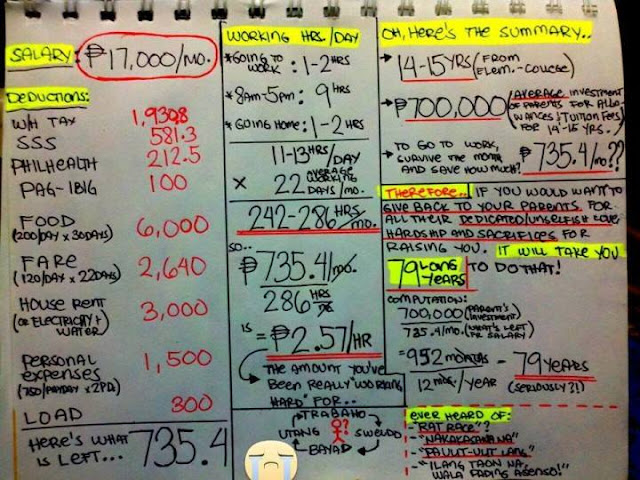 SALARY: ₱17,000/MO.
DEDUCTIONS:
W/H TAX 1,930.8
SSS 581.3
PHILHEALTH 212.5
PAG-IBIG 100
FOOD 6,000
(200/DAY X 30DAYS)
FARE 2,640
(120/DAY X 22DAYS)
HOUSE RENT 3,000
(OR ELECTRICITY +
WATER)
PERSONAL 1,500
EXPENSES
(750/PAYDAY X 2PD)
LOAD 300
HERE'S WHAT
IS LEFT... 735.4
WORKING HRS/DAY
*GOING TO
WORK : 1-2 HRS
*8AM-5PM: 9 HRS
*GOING HOME: 1-2 HRS
11-13 HRS/DAY
X 22 AVERAGE
WORKING
DAYS/MO.
242-286 HRS/MO.
SO..
₱735.4/MO.
286 HRS/MO.
IS = ₱2.57/HR
THE AMOUNT YOU'VE
BEEN REALLY "WORKING
HARD" FOR..
TRABAHO
UTANG ?? SWELDO
BAYAD
OH, HERE'S THE SUMMARY..
14-15 YRS (FROM
ELEM.-COLLEGE)
₱700,000 (AVERAGE INVESTMENT
OF PARENTS FOR ALLO
WANCES & TUITION FEES
FOR 14-15 YRS..)
TO GO TO WORK,
SURVIVE THE MONTH
AND SAVE HOW MUCH? ₱735.4/MO??
THEREFORE.. IF YOU WOULD WANT TO
GIVE BACK TO YOUR PARENTS, FOR
ALL THEIR DEDICATED/UNSELFISH LOVE,
HARDSHIP AND SACRIFICES FOR
RAISING YOU. IT WILL TAKE YOU
79 LONG
YEARS TO DO THAT!
COMPUTATION:
700,000 (PARENT'S
INVESTMENT)
735.4/MO. (WHAT'S LEFT
FR SALARY)
= 952 MONTHS = 79 YEARS
12 MOS./YEAR (SERIOUSLY?!)
EVER HEARD OF:
- "RAT RACE"?
- "NAKAKASAWA NA"
- "PAULIT-ULIT LANG"
- "ILANG TAON NA,
WALA PADING ASENSO!"